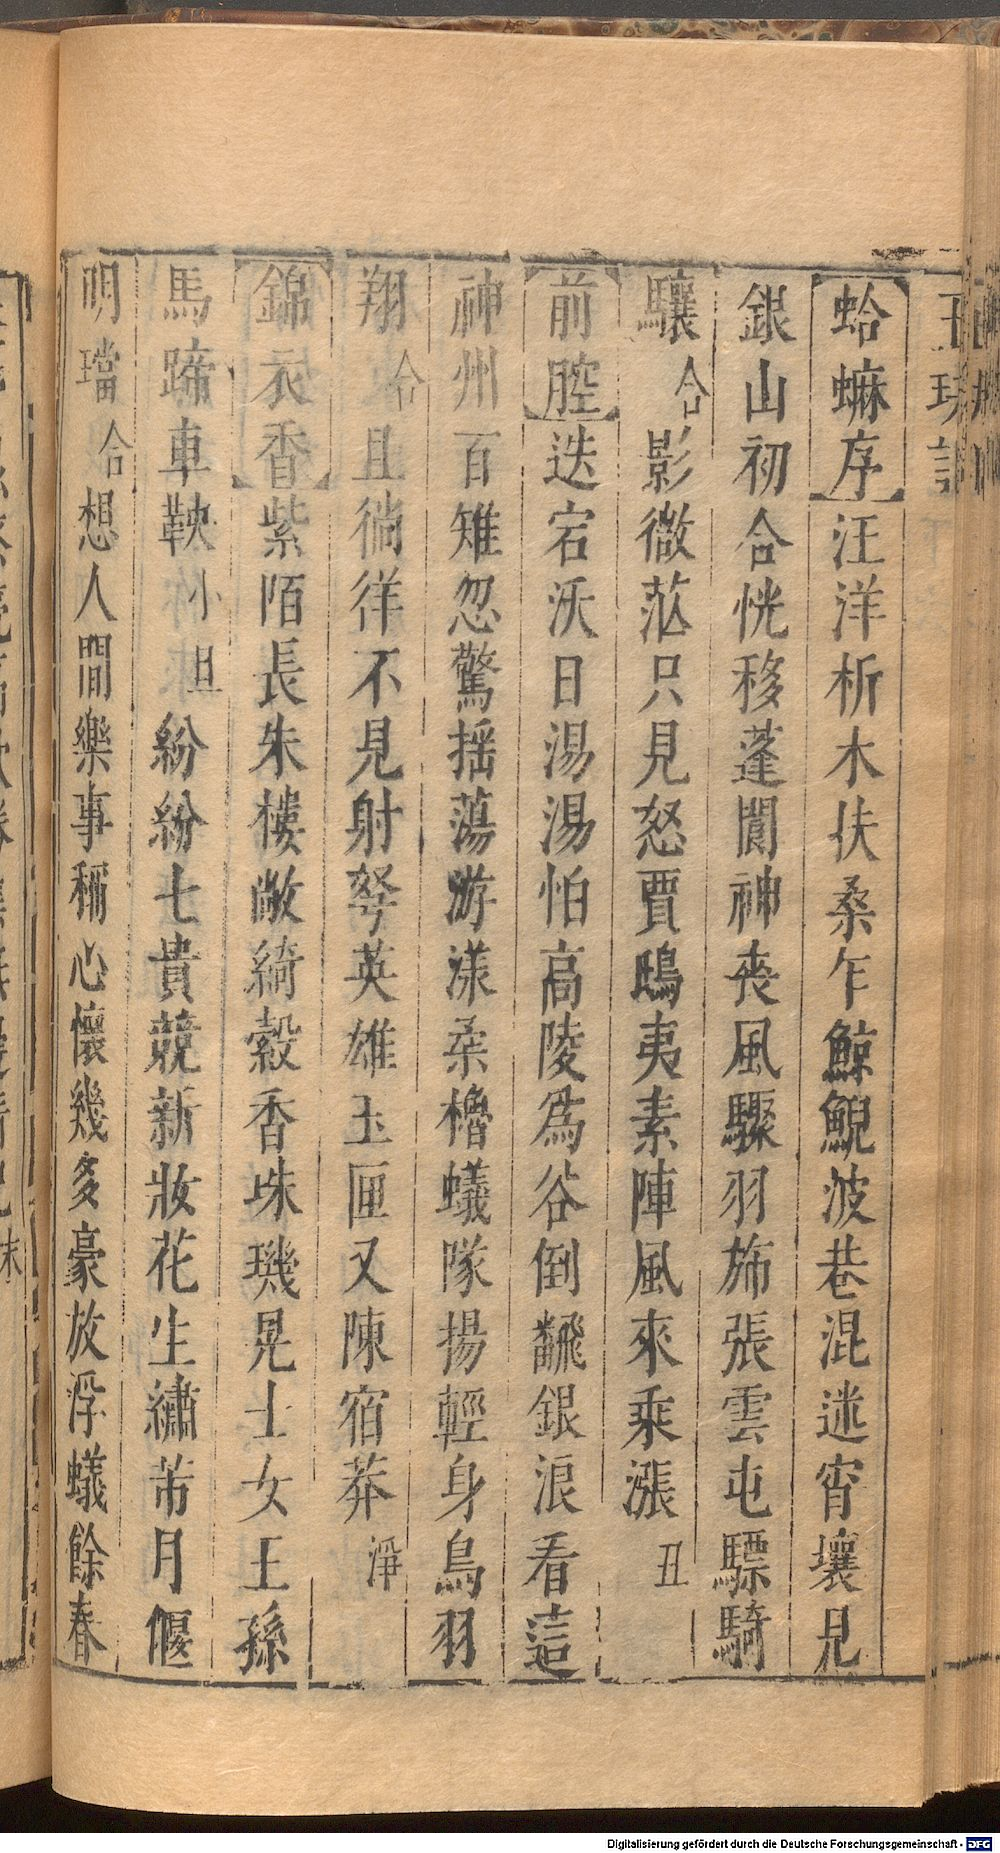 蛤蟆序汪洋析木扶桑乍鯨鯢波巷混迷宵壤見
銀山初合恍移蓬閬神喪風驟羽斾張雲屯驃騎
驤合影微茫只見怒賈鴟夷素陣風來乘漲丑
前腔迭宕沃日湯湯怕高陵為谷倒翻銀浪看這
神州百雉忽驚揺蕩游漾柔櫓蟻隊揚輕身鳥羽
翔合且徜徉不見射弩英雄玉匣又陳宿莽淨
錦衣香紫陌長朱樓敞綺縠香珠璣晃士女王孫
馬蹄車鞅小旦紛紛七貴競新妝花生繡芾月偃
明璫合想人間樂事稱心懷幾多豪放浮蟻餘春
Digitalisierung gefördert durch die Deutsche Forschungsgemeinschaft - DFG